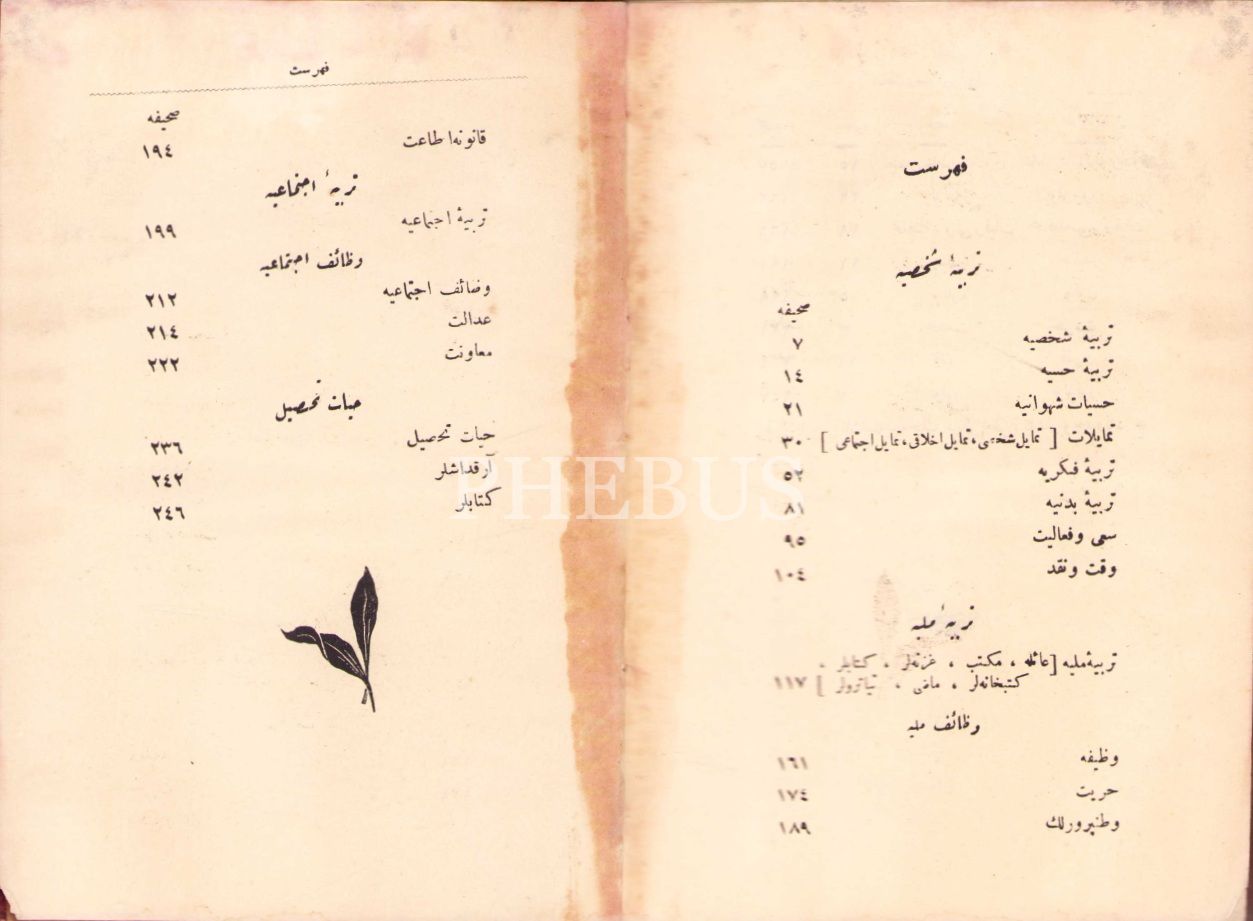 فهرست
تربیهٔ شخصیه
صحیفه
تربیهٔ شخصیه ٧
تربیهٔ حسیه ١٤
حسیات شهوانیه ٢١
تمایلات [ تمایل شخصی ، تمایل اخلاقی ، تمایل اجتماعی ] ٣٠
تربیهٔ فکریه ٥٢
تربیهٔ بدنیه ٨١
سعی وفعالیت ٩٥
وقت ونقد ١٠٤
تربیهٔ ملیه
تربیهٔ ملیه [ عائله ، مکتب ، غزته‌لر ، کتابلر ،
کتبخانه‌لر ، ماضی ، تیاترولر ] ١١٧
وظائف ملیه
وظیفه ١٦١
حریت ١٧٤
وطنپرورلك ١٨٩
فهرست
صحیفه
قانونه اطاعت ١٩٤
تربیهٔ اجتماعیه
تربیهٔ اجتماعیه ١٩٩
وظائف اجتماعیه
وضائف اجتماعیه ٢١٢
عدالت ٢١٤
معاونت ٢٢٢
حیات تحصیل
حیات تحصیل ٢٣٦
آرقداشلر ٢٤٢
کتابلر ٢٤٦
PHEBUS